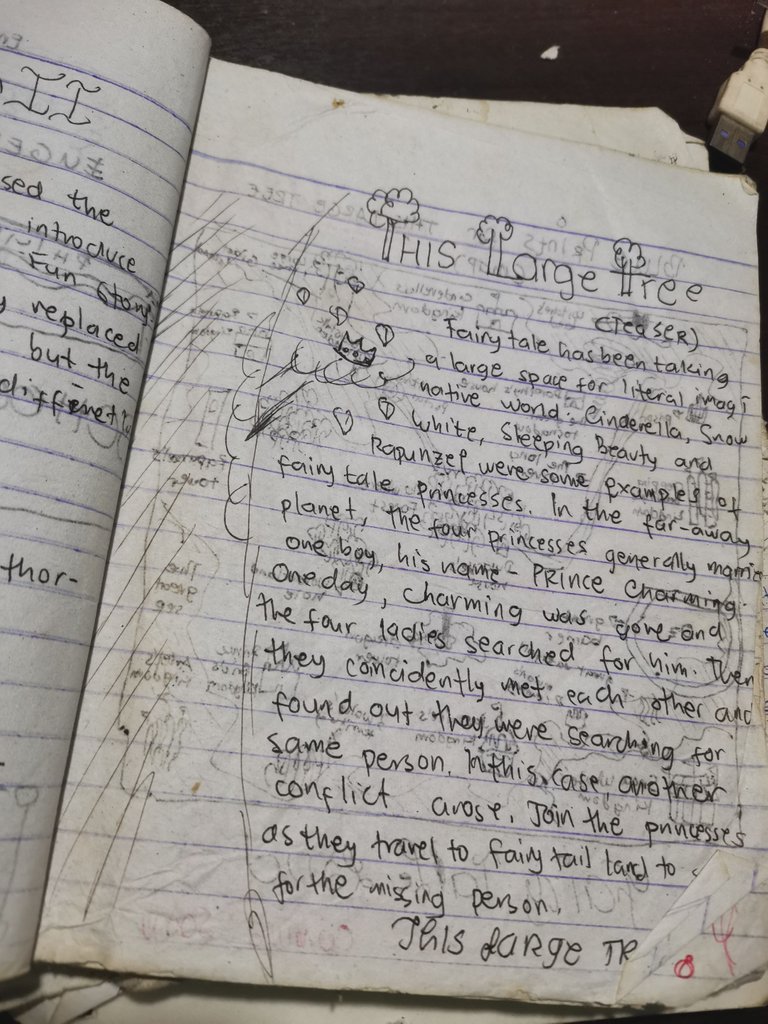 II
sed the
introduce
Fun Story
y replaced
but the
thor-
THIS Large Tree
(TEASER)
Fairy tale has been taking
a large space for literal imagi
native world. Cinderella, Snow
White, Sleeping Beauty and
Rapunzel were some examples of
fairy tale princesses. In the far-away
planet, the four princesses generally
one boy, his name - Prince Charming.
One day, Charming was gone and
the four ladies searched for him. Then
they coincidently met each other and
found out they were searching for
same person. In this case another
conflict arose. Join the princesses
as they travel to fairy tail land to
for the missing person.
THIS LARGE TR